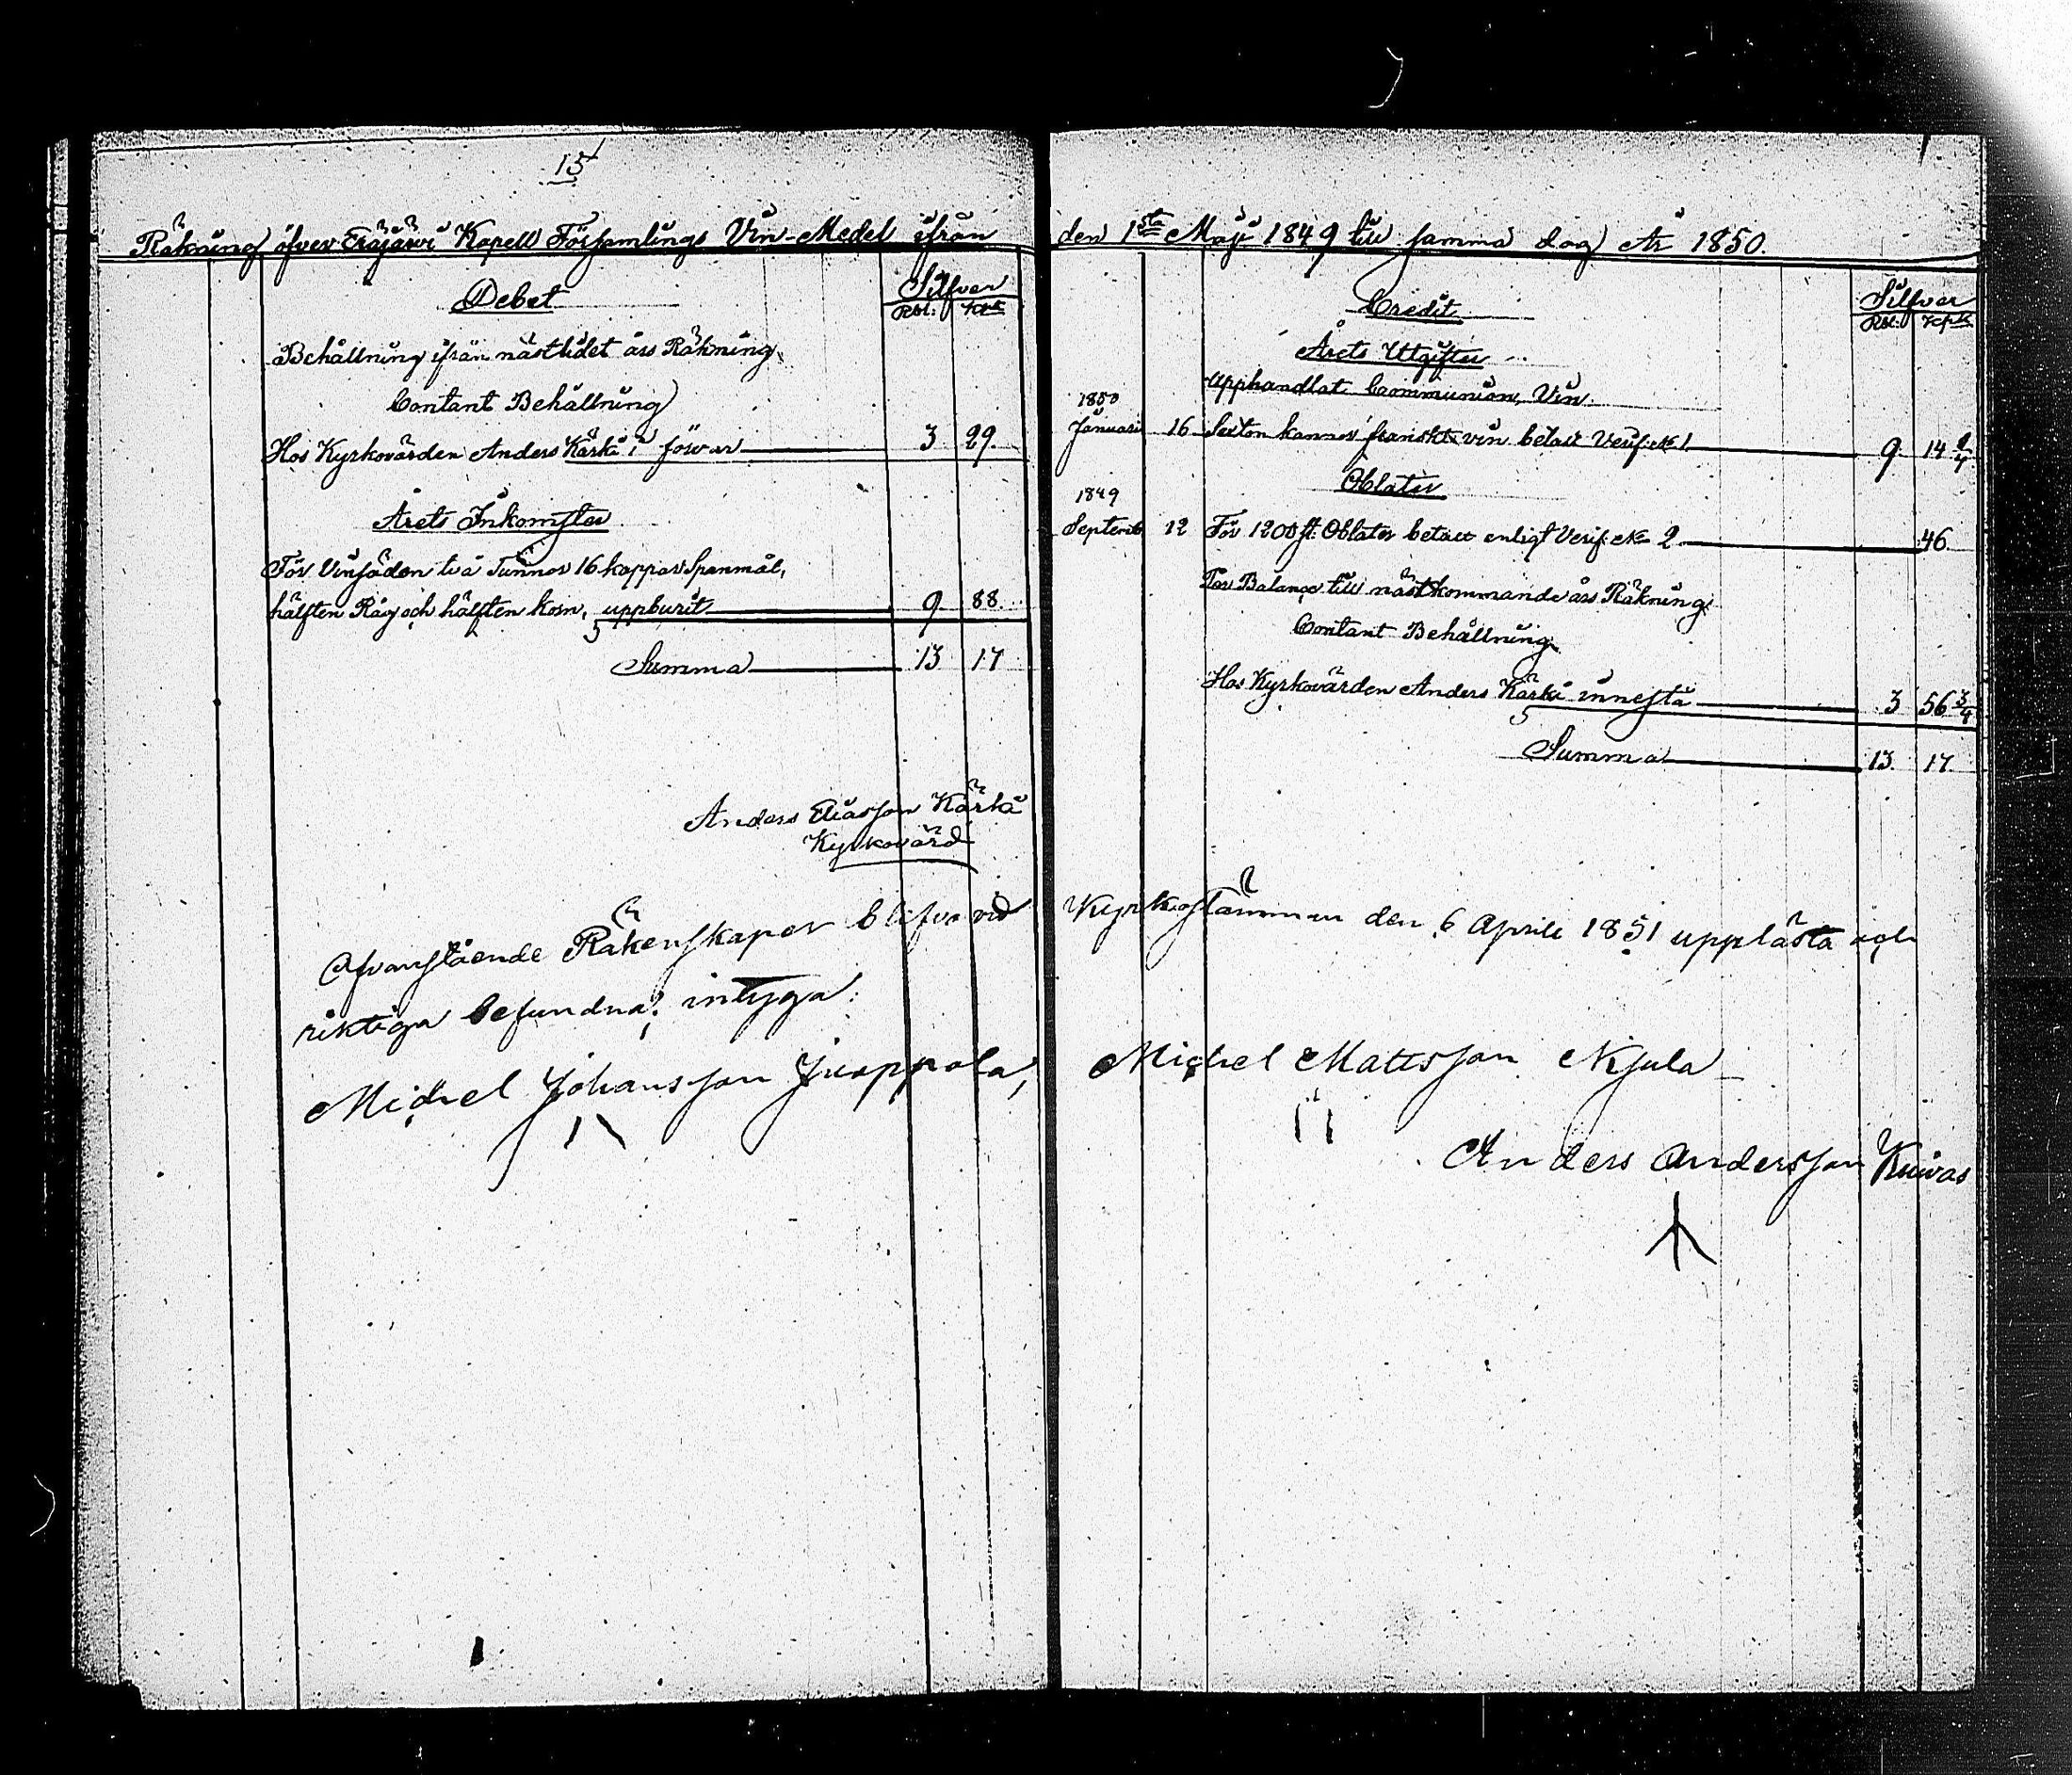 15
Räkning öfver Eräjärvi Kapell Församlings Vin-Medel ifrån
Debet
Silfver
Rbl. Kpk
Behållning ifrån nästlidet års Räkning.
Contant Behållning
Hos Kyrkovärden Anders Kärki i förvar 3 29.
Årets Inkomster
För Vinsäden två Tunnor 16 kappar Spanmål,
hälften Råg och hälften korn, uppburit 9 88.
Summa 13 17
Anders Eliasson Kärki
Kyrkovärd
den 1sta Maji 1849 till samma dag År 1850.
Credit
Silfver
Rbl. Kpk
Årets Utgifter
Upphandlat Communion Vin.
1850
Januari 16 Sexton kannor franskt vin betalt Verif: N 1 9. 14 1/4
Oblater
1849
Septemb 12 För 1200 st: Oblater betalt enligt Verif: N 2 46.
För Balance till nästkommande års Räkning.
Contant Behållning
Hos Kyrkovärden Anders Kärki innestå 3 56 3/4
Summa 13. 17.
Ofvanstående Räkenskaper blifvit vid Kyrkostämman den 6 Aprill 1851 upplästa och
riktiga befundna; intyga:
Michel Johansson Juoppola, Michel Mattsson
Anders Andersson Kuivas